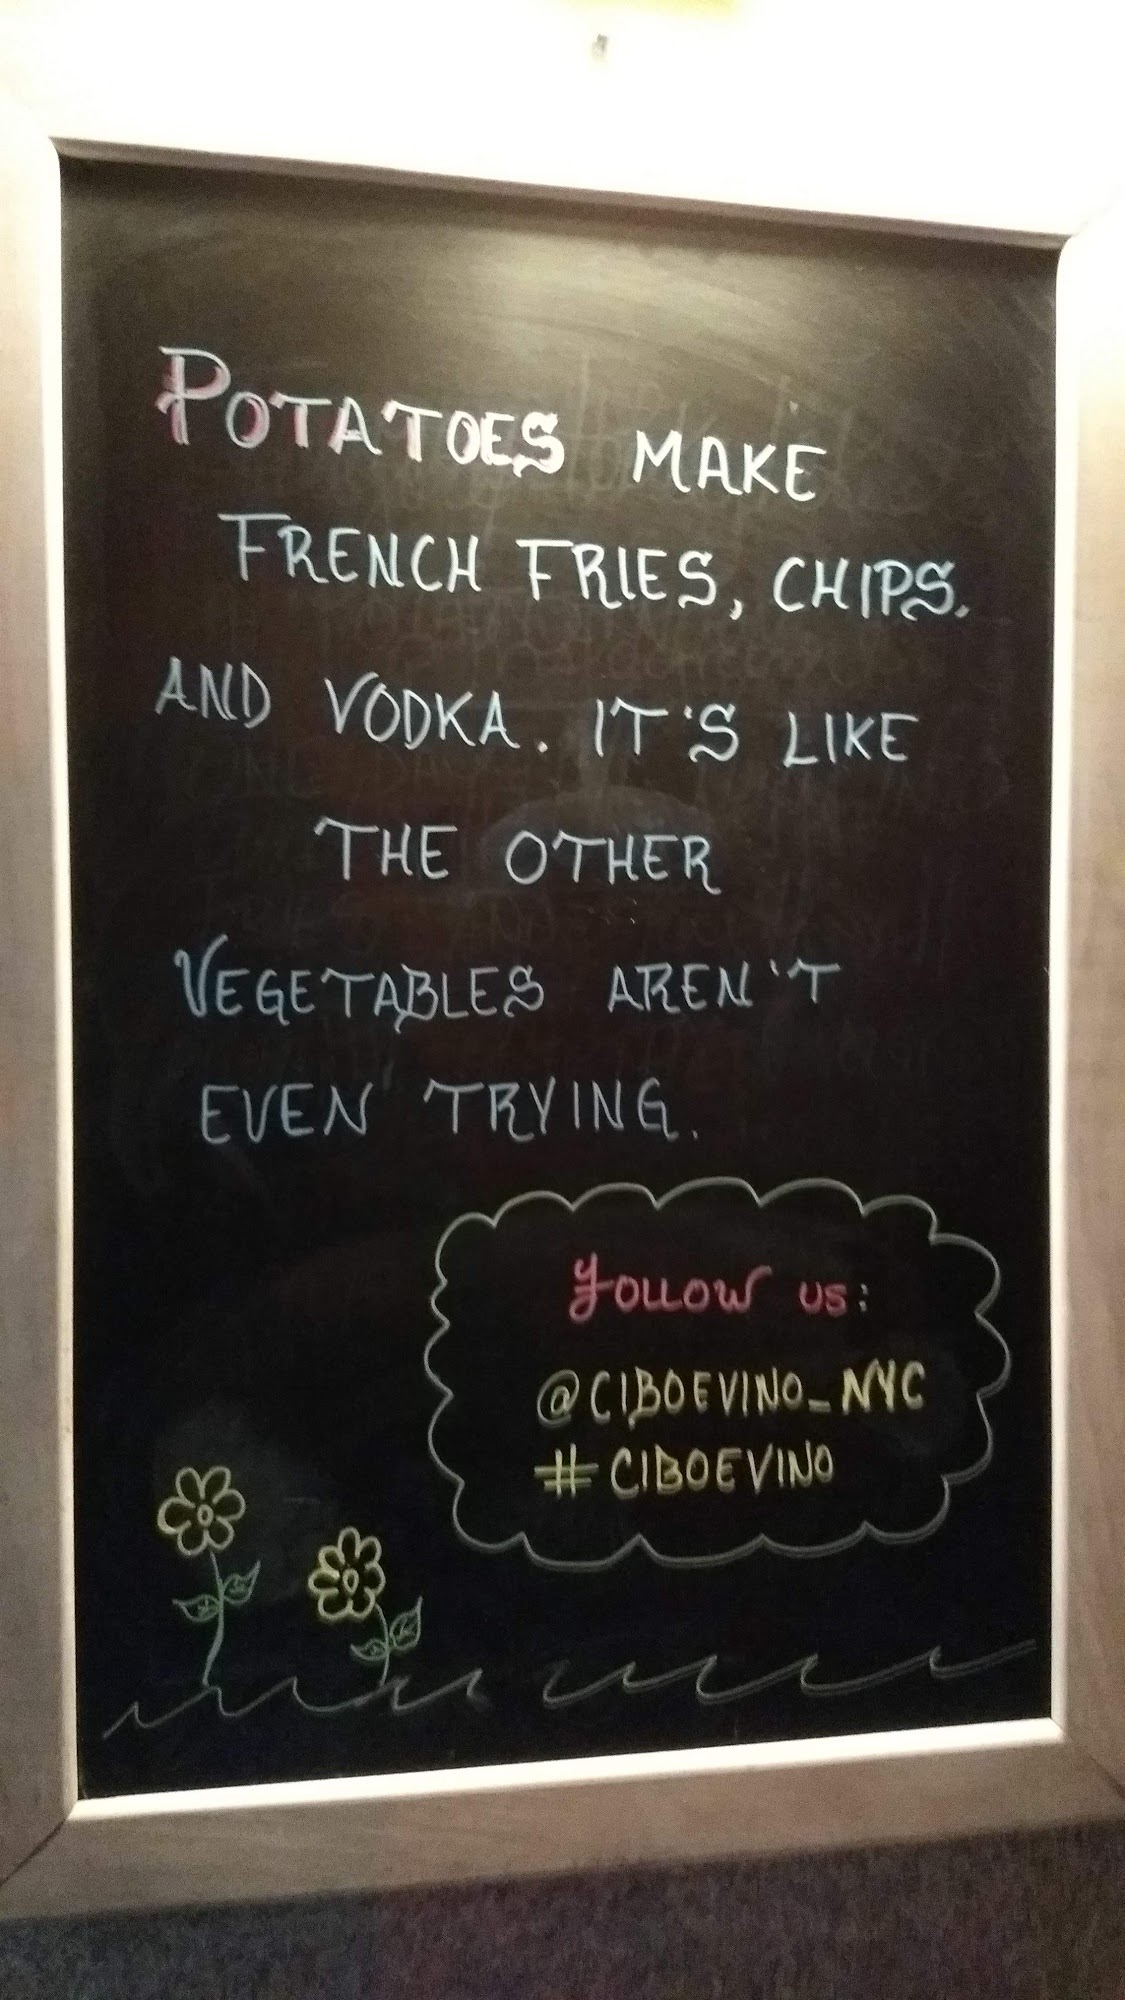 POTATOES MAKE
FRENCH FRIES, CHIPS.
AND VODKA. IT'S LIKE
THE OTHER
VEGETABLES AREN'T
EVEN TRYING.
FOLLOW US:
@CIBOEVINO_NYC
#CIBOEVINO